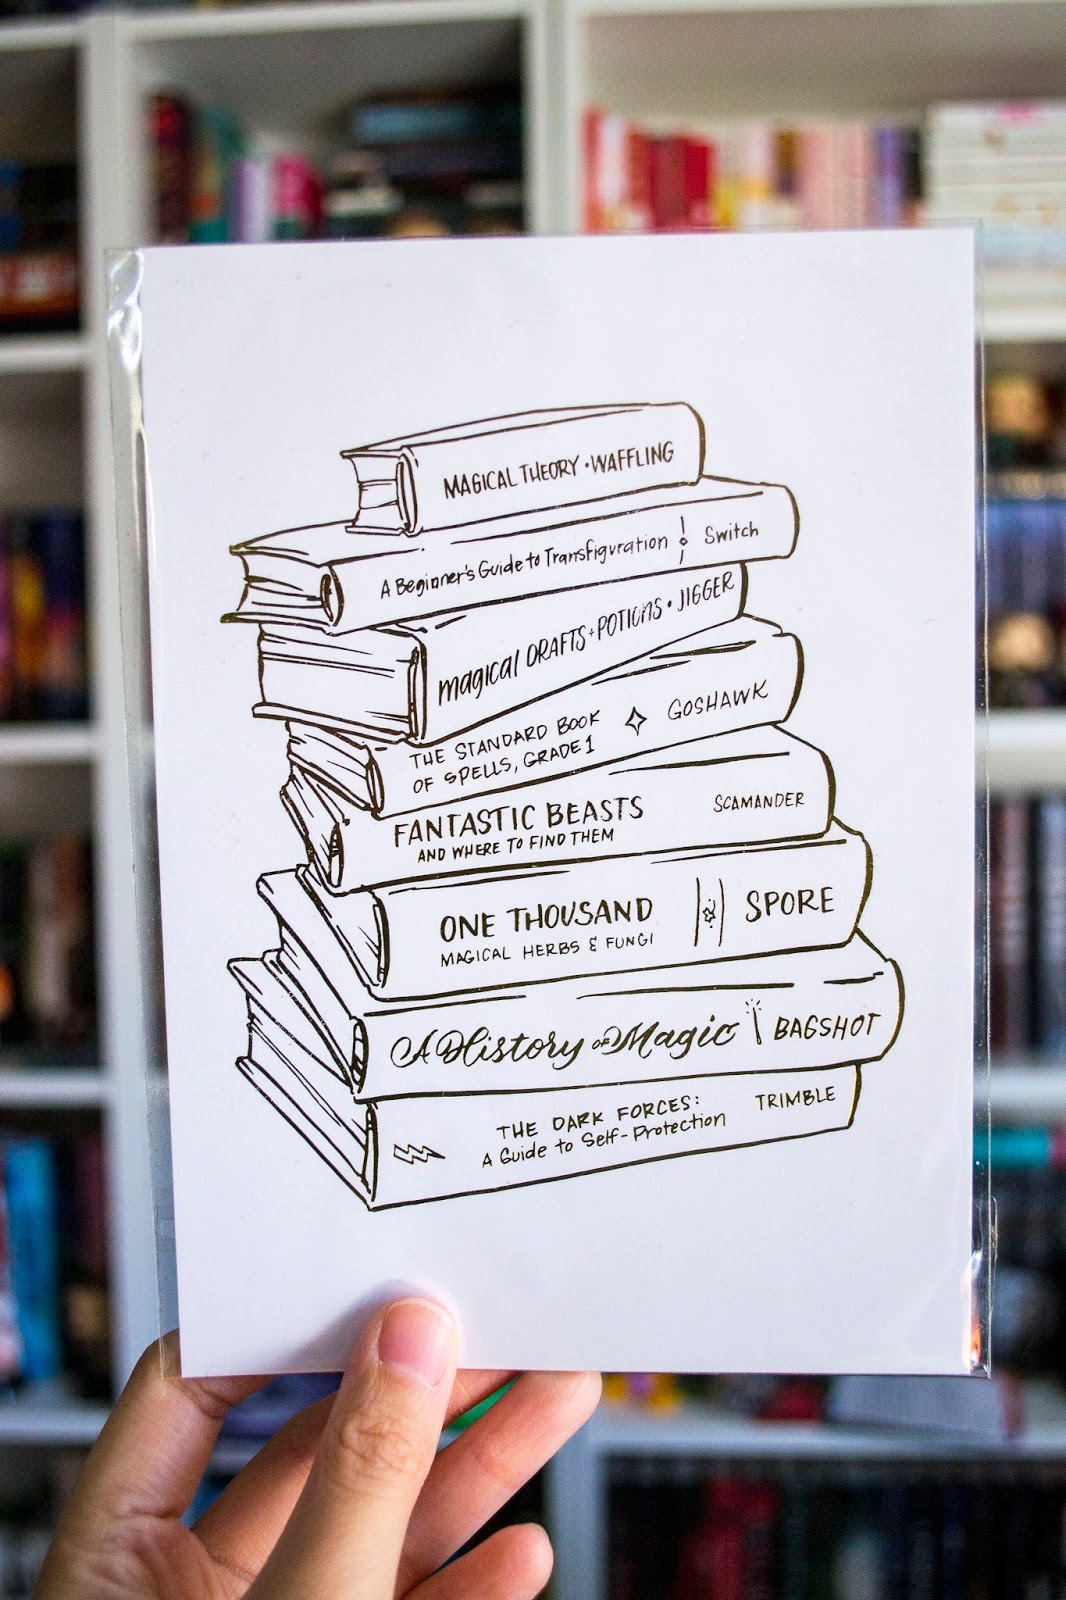 MAGICAL THEORY • WAFFLING
A Beginner's Guide to Transfiguration Switch
magical DRAFTS + POTIONS • JIGGER
THE STANDARD BOOK
OF SPELLS, GRADE 1
GOSHAWK
FANTASTIC BEASTS
AND WHERE TO FIND THEM
SCAMANDER
ONE THOUSAND
MAGICAL HERBS & FUNGI
SPORE
A History of Magic BAGSHOT
THE DARK FORCES:
A Guide to Self-Protection
TRIMBLE